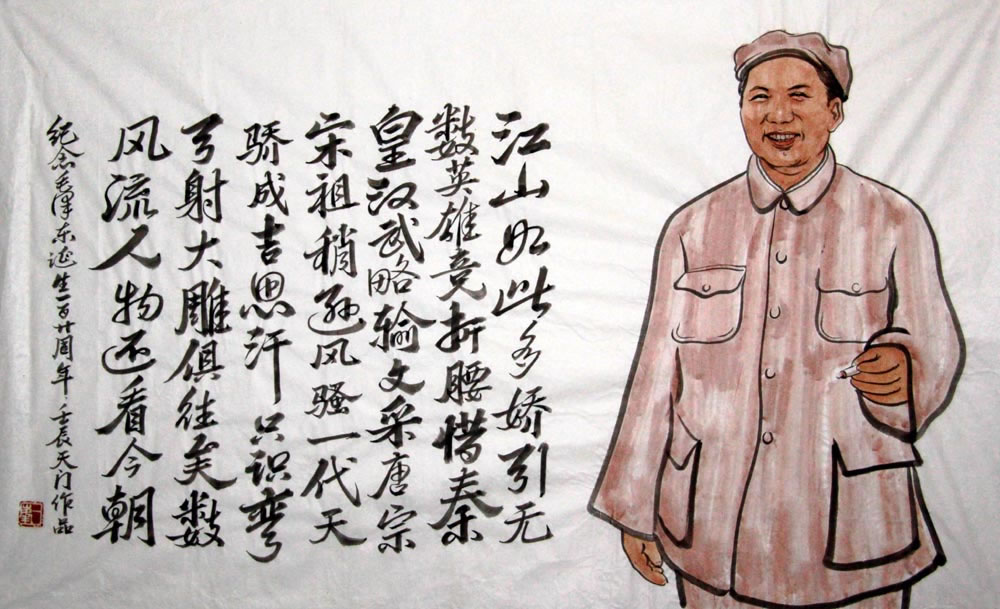 江山如此多娇引无
数英雄竞折腰惜秦
皇汉武略输文采唐宗
宋祖稍逊风骚一代天
骄成吉思汗只识弯
弓射大雕俱往矣数
风流人物还看今朝
纪念毛泽东诞生一百廿周年·壬辰天门作品